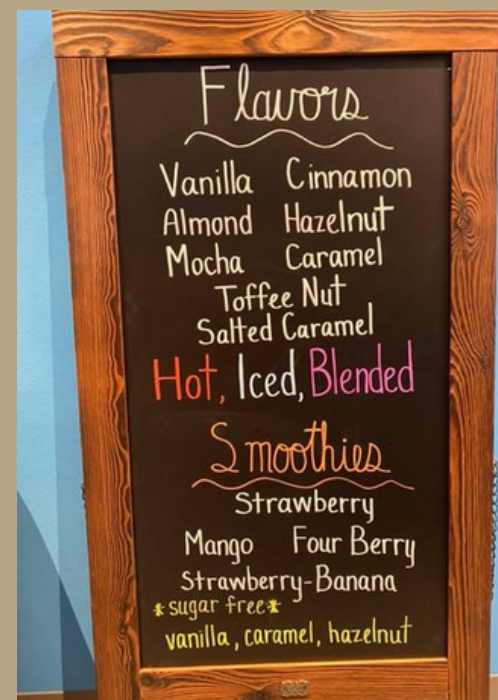 Flavors
Vanilla Cinnamon
Almond Hazelnut
Mocha Caramel
Toffee Nut
Salted Caramel
Hot, Iced, Blended
Smoothies
Strawberry
Mango Four Berry
Strawberry-Banana
*sugar free*
vanilla, caramel, hazelnut